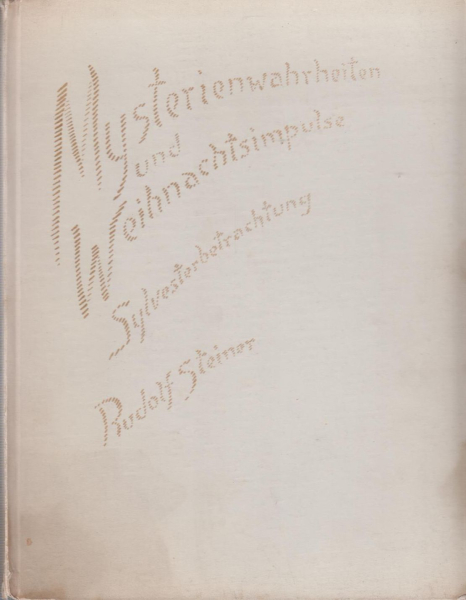 Mysterienwahrheiten
und
Weihnachtsimpulse
Sylvesterbetrachtung
Rudolf Steiner